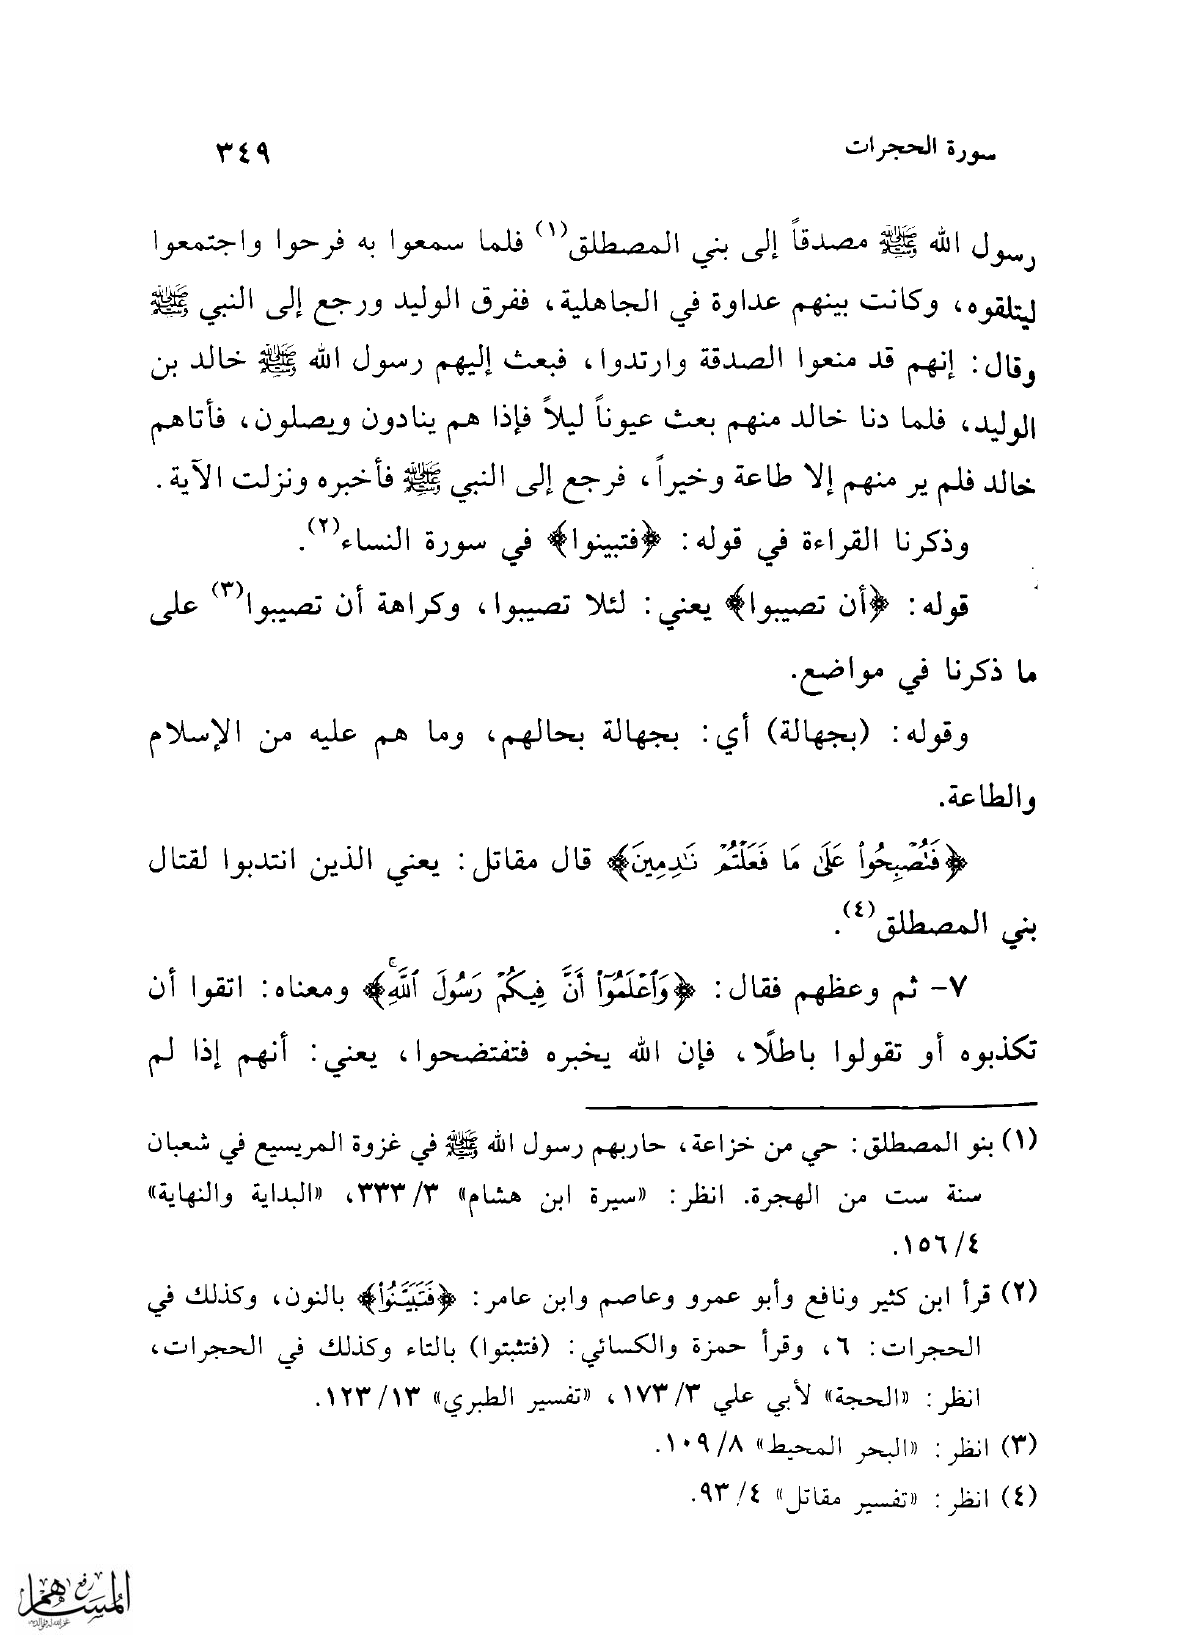 سورة الحجرات ٣٤٩
رسول الله ﷺ مصدقاً إلى بني المصطلق(١) فلما سمعوا به فرحوا واجتمعوا
ليتلقوه، وكانت بينهم عداوة في الجاهلية، ففرق الوليد ورجع إلى النبي ﷺ
وقال: إنهم قد منعوا الصدقة وارتدوا، فبعث إليهم رسول الله ﷺ خالد بن
الوليد، فلما دنا خالد منهم بعث عيوناً ليلاً فإذا هم ينادون ويصلون، فأتاهم
خالد فلم ير منهم إلا طاعة وخيراً، فرجع إلى النبي ﷺ فأخبره ونزلت الآية.
وذكرنا القراءة في قوله: ﴿فتبينوا﴾ في سورة النساء(٢).
قوله: ﴿أن تصيبوا﴾ يعني: لئلا تصيبوا، وكراهة أن تصيبوا(٣) على
ما ذكرنا في مواضع.
وقوله: (بجهالة) أي: بجهالة بحالهم، وما هم عليه من الإسلام
والطاعة.
﴿فَتُصْبِحُوا۟ عَلَىٰ مَا فَعَلْتُمْ نَـٰدِمِينَ﴾ قال مقاتل: يعني الذين انتدبوا لقتال
بني المصطلق(٤).
٧- ثم وعظهم فقال: ﴿وَٱعْلَمُوٓا۟ أَنَّ فِيكُمْ رَسُولَ ٱللَّهِ ۚ﴾ ومعناه: اتقوا أن
تكذبوه أو تقولوا باطلًا، فإن الله يخبره فتفتضحوا، يعني: أنهم إذا لم
(١) بنو المصطلق: حي من خزاعة، حاربهم رسول الله ﷺ في غزوة المريسيع في شعبان
سنة ست من الهجرة. انظر: «سيرة ابن هشام» ٣/ ٣٣٣، «البداية والنهاية»
٤/ ١٥٦.
(٢) قرأ ابن كثير ونافع وأبو عمرو وعاصم وابن عامر: ﴿فَتَبَيَّنُوا۟﴾ بالنون، وكذلك في
الحجرات: ٦، وقرأ حمزة والكسائي: (فتثبتوا) بالتاء وكذلك في الحجرات،
انظر: «الحجة» لأبي علي ٣/ ١٧٣، «تفسير الطبري» ١٣/ ١٢٣.
(٣) انظر: «البحر المحيط» ٨/ ١٠٩.
(٤) انظر: «تفسير مقاتل» ٤/ ٩٣.
رفع
المساهم